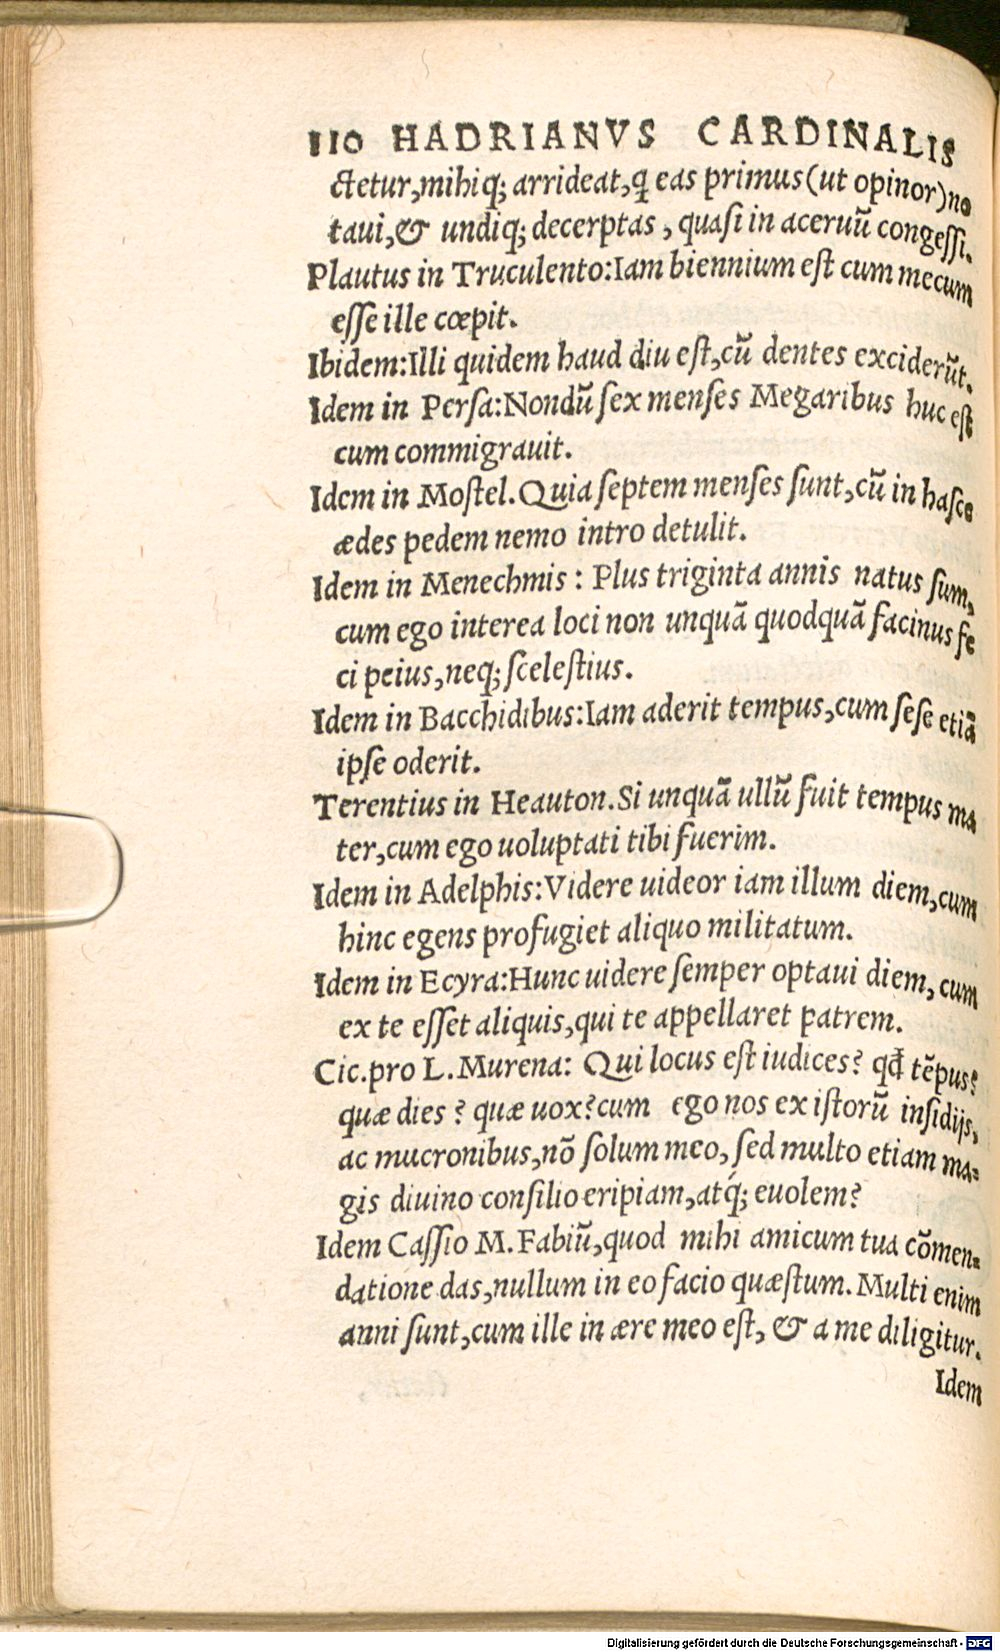 110 HADRIANVS CARDINALIS
ctetur,mihiq; arrideat,q eas primus(ut opinor)no
taui,& undiq; decerptas, quasi in aceruũ congessi.
Plautus in Truculento:Iam biennium est cum mecum
esse ille cœpit.
Ibidem:Illi quidem haud diu est,cũ dentes exciderũt.
Idem in Persa:Nondũ sex menses Megaribus huc est
cum commigrauit.
Idem in Mostel.Quia septem menses sunt,cũ in hasce
ædes pedem nemo intro detulit.
Idem in Menechmis: Plus triginta annis natus sum,
cum ego interea loci non unquã quodquã facinus fe
ci peius,neq; scelestius.
Idem in Bacchidibus:Iam aderit tempus,cum sese etiã
ipse oderit.
Terentius in Heauton.Si unquã ullũ fuit tempus ma
ter,cum ego uoluptati tibi fuerim.
Idem in Adelphis:Videre uideor iam illum diem,cum
hinc egens profugiet aliquo militatum.
Idem in Ecyra:Hunc uidere semper optaui diem, cum
ex te esset aliquis,qui te appellaret patrem.
Cic.pro L.Murena: Qui locus est iudices? qđ tẽpus?
quæ dies? quæ uox?cum ego nos ex istorũ insidijs,
ac mucronibus,nõ solum meo, sed multo etiam ma-
gis diuino consilio eripiam,atq́; euolem?
Idem Cassio M.Fabiũ,quod mihi amicum tua cõmen-
datione das,nullum in eo facio quæstum. Multi enim
anni sunt,cum ille in ære meo est, & a me diligitur.
Idem
Digitalisierung gefördert durch die Deutsche Forschungsgemeinschaft - DFG